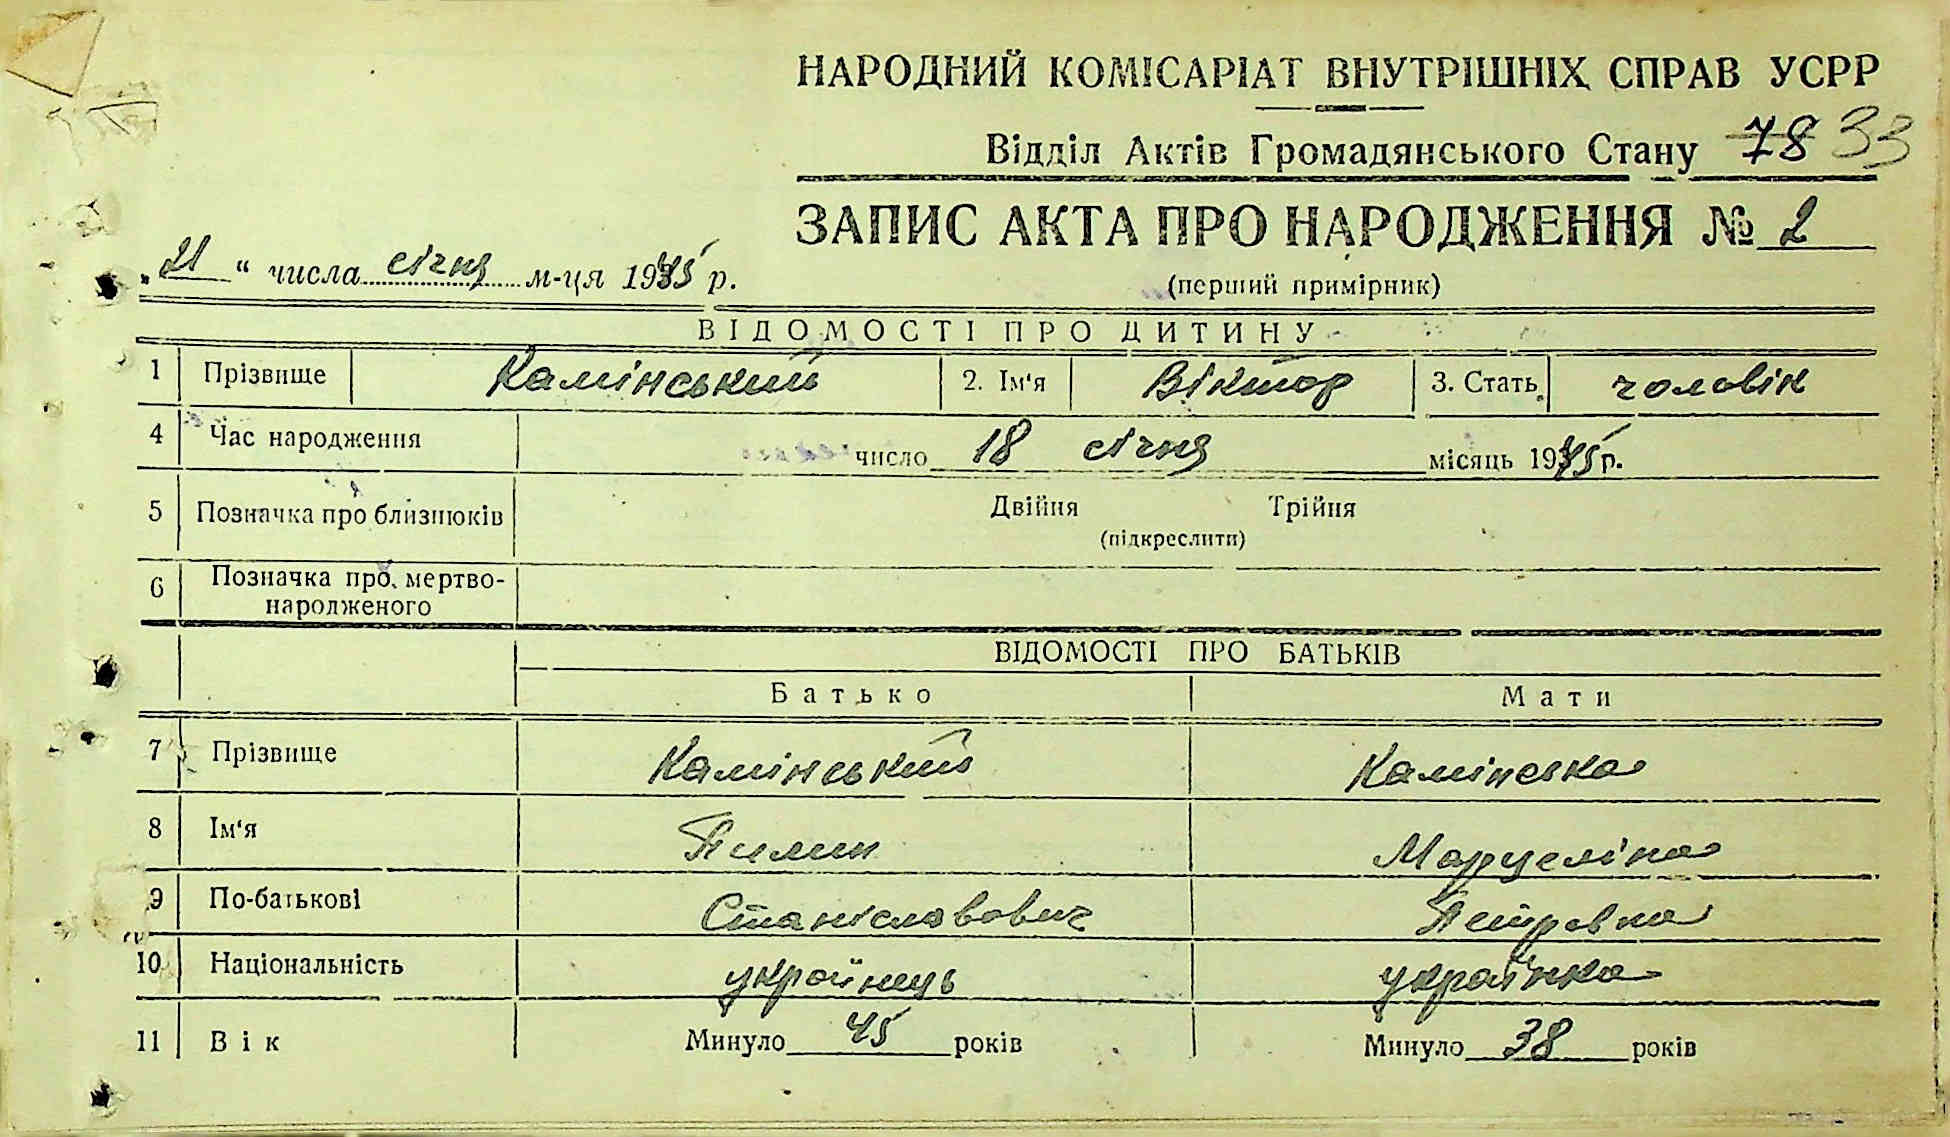 НАРОДНИЙ КОМІСАРІАТ ВНУТРІШНІХ СПРАВ УСРР
Відділ Актів Громадянського Стану 78 33
ЗАПИС АКТА ПРО НАРОДЖЕННЯ № 2
„21“ числа січня м-ця 1945 р.
(перший примірник)
ВІДОМОСТІ ПРО ДИТИНУ
1 Прізвище Камінський 2. Ім'я Віктор 3. Стать чоловік
4 Час народження число 18 січня місяць 1945 р.
5 Позначка про близнюків Двійня Трійня
(підкреслити)
6 Позначка про мертво-
народженого
ВІДОМОСТІ ПРО БАТЬКІВ
Батько Мати
7 Прізвище Камінський Камінська
8 Ім'я Пилип Марцеліна
9 По-батькові Станіславович Петровна
10 Національність українець українка
11 Вік Минуло 45 років Минуло 38 років